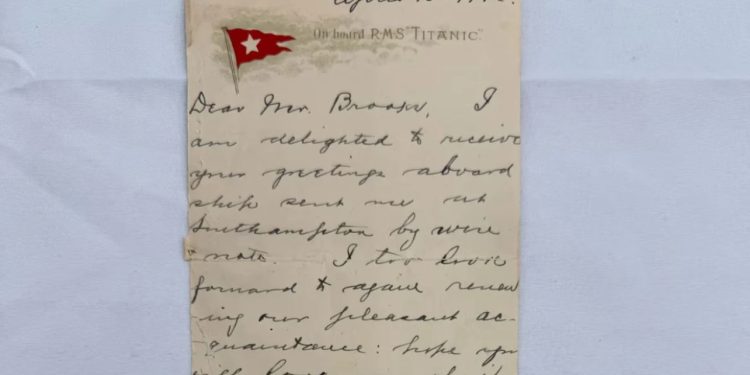 On board R.M.S "TITANIC".
Dear Mr. Brooks, I
am delighted to receive
your greetings aboard
ship sent me at
Southampton by wire
+ note. I too look
forward to again renew
-ing our pleasant ac-
quaintance: hope you